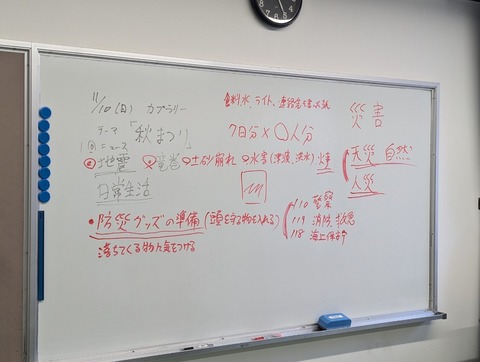 11/10(日) カブラリー
テーマ 「秋まつり」
ニュース
食料、水、ライト、連絡
災害
7日分×〇人分
地震 竜巻 土砂崩れ 水害(津波、洪水) 火事
天災 自然
人災
日常生活
・防災グッズの準備(頭を守る物を入れる)
落ちてくる物に気をつける
110 警察
119 消防、救急
118 海上保安庁